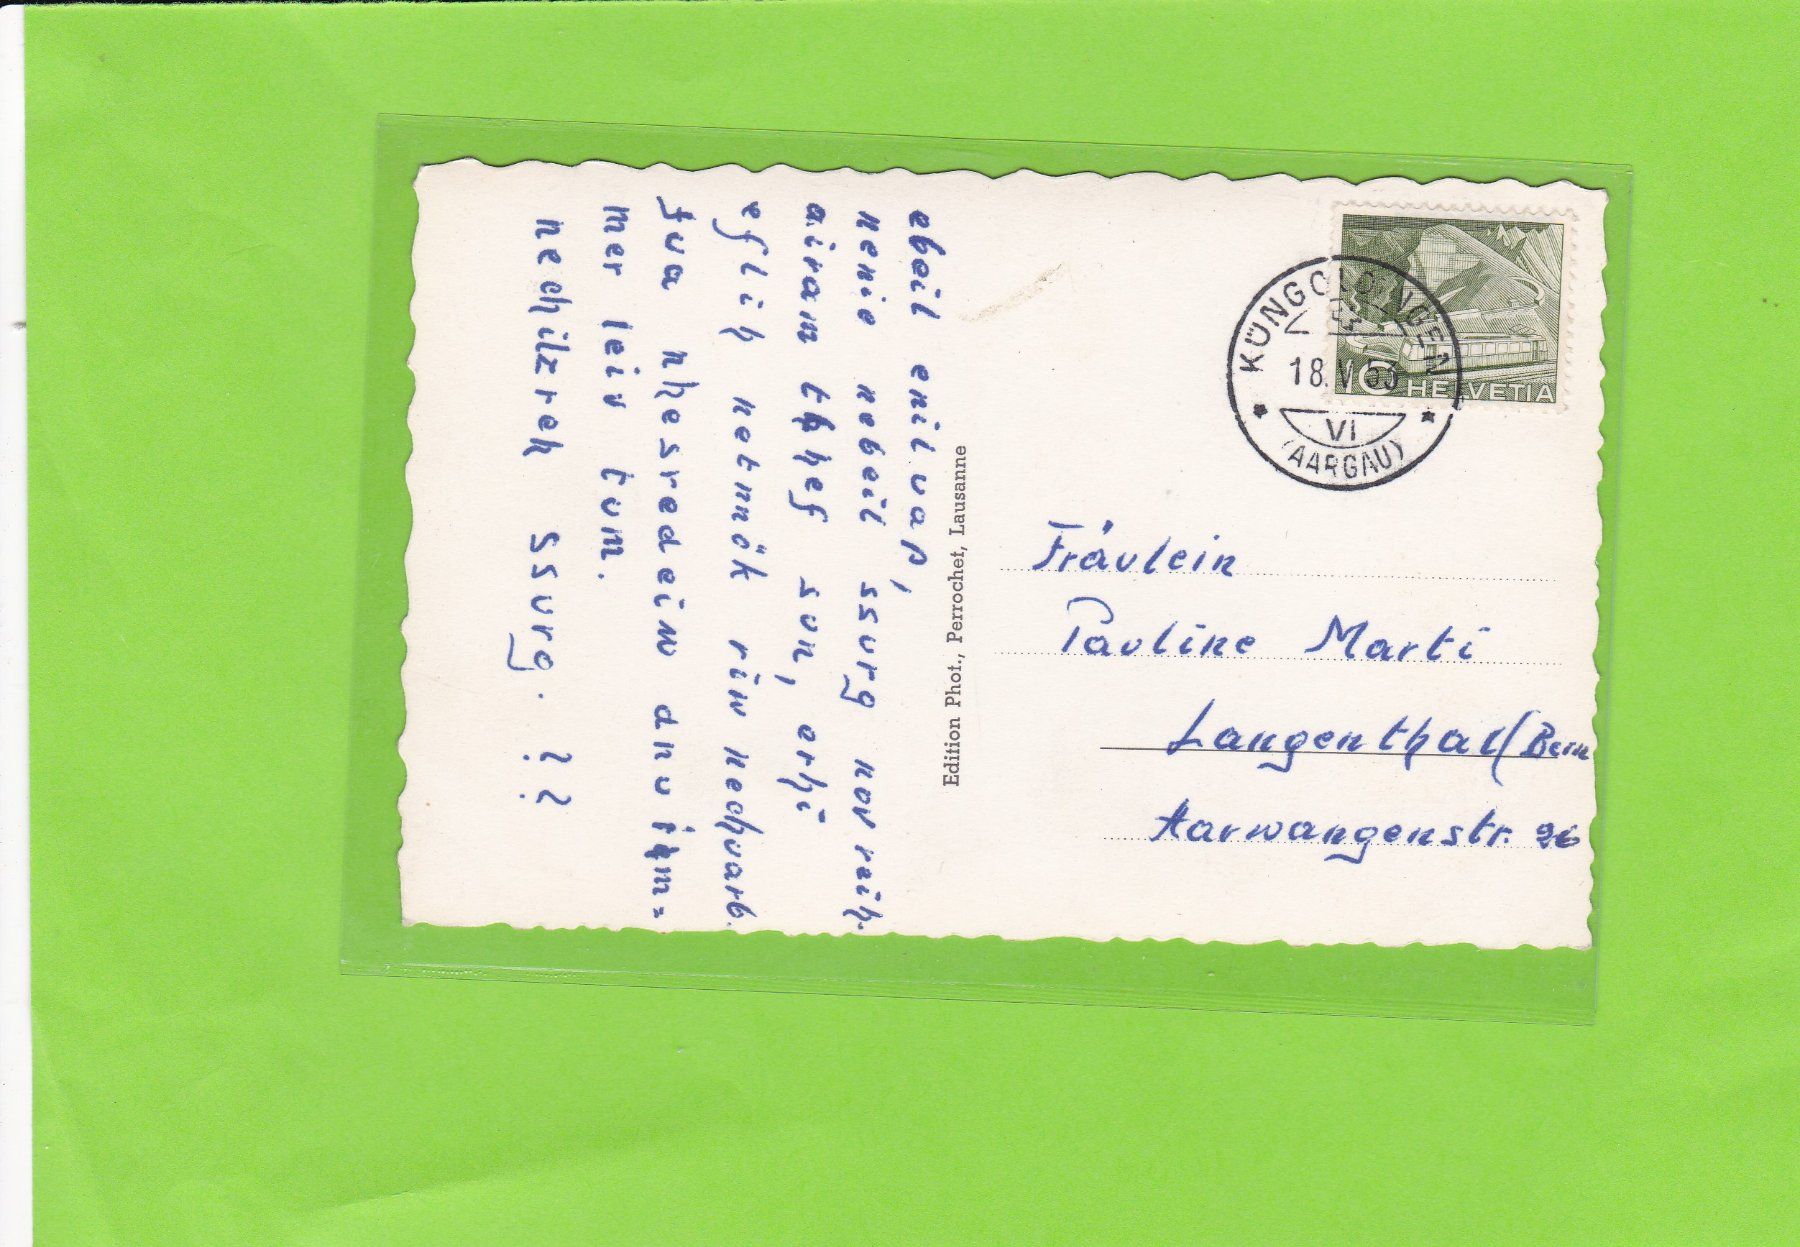 ebeil eniluap,
nenie nebeil ssurg nov reih.
airam thef sun, erhi
eflih netnnök riw nechuarb.
fua nhesredeiw dnu imm=
mer leiv tum.
nechilzreh ssurg. ??
Edition Phot., Perrochet, Lausanne
KÜNGOLDINGEN
18.V.53
VI
(AARGAU)
10 HELVETIA
Fräulein
Pauline Marti
Langenthal/Bern
Aarwangenstr. 26